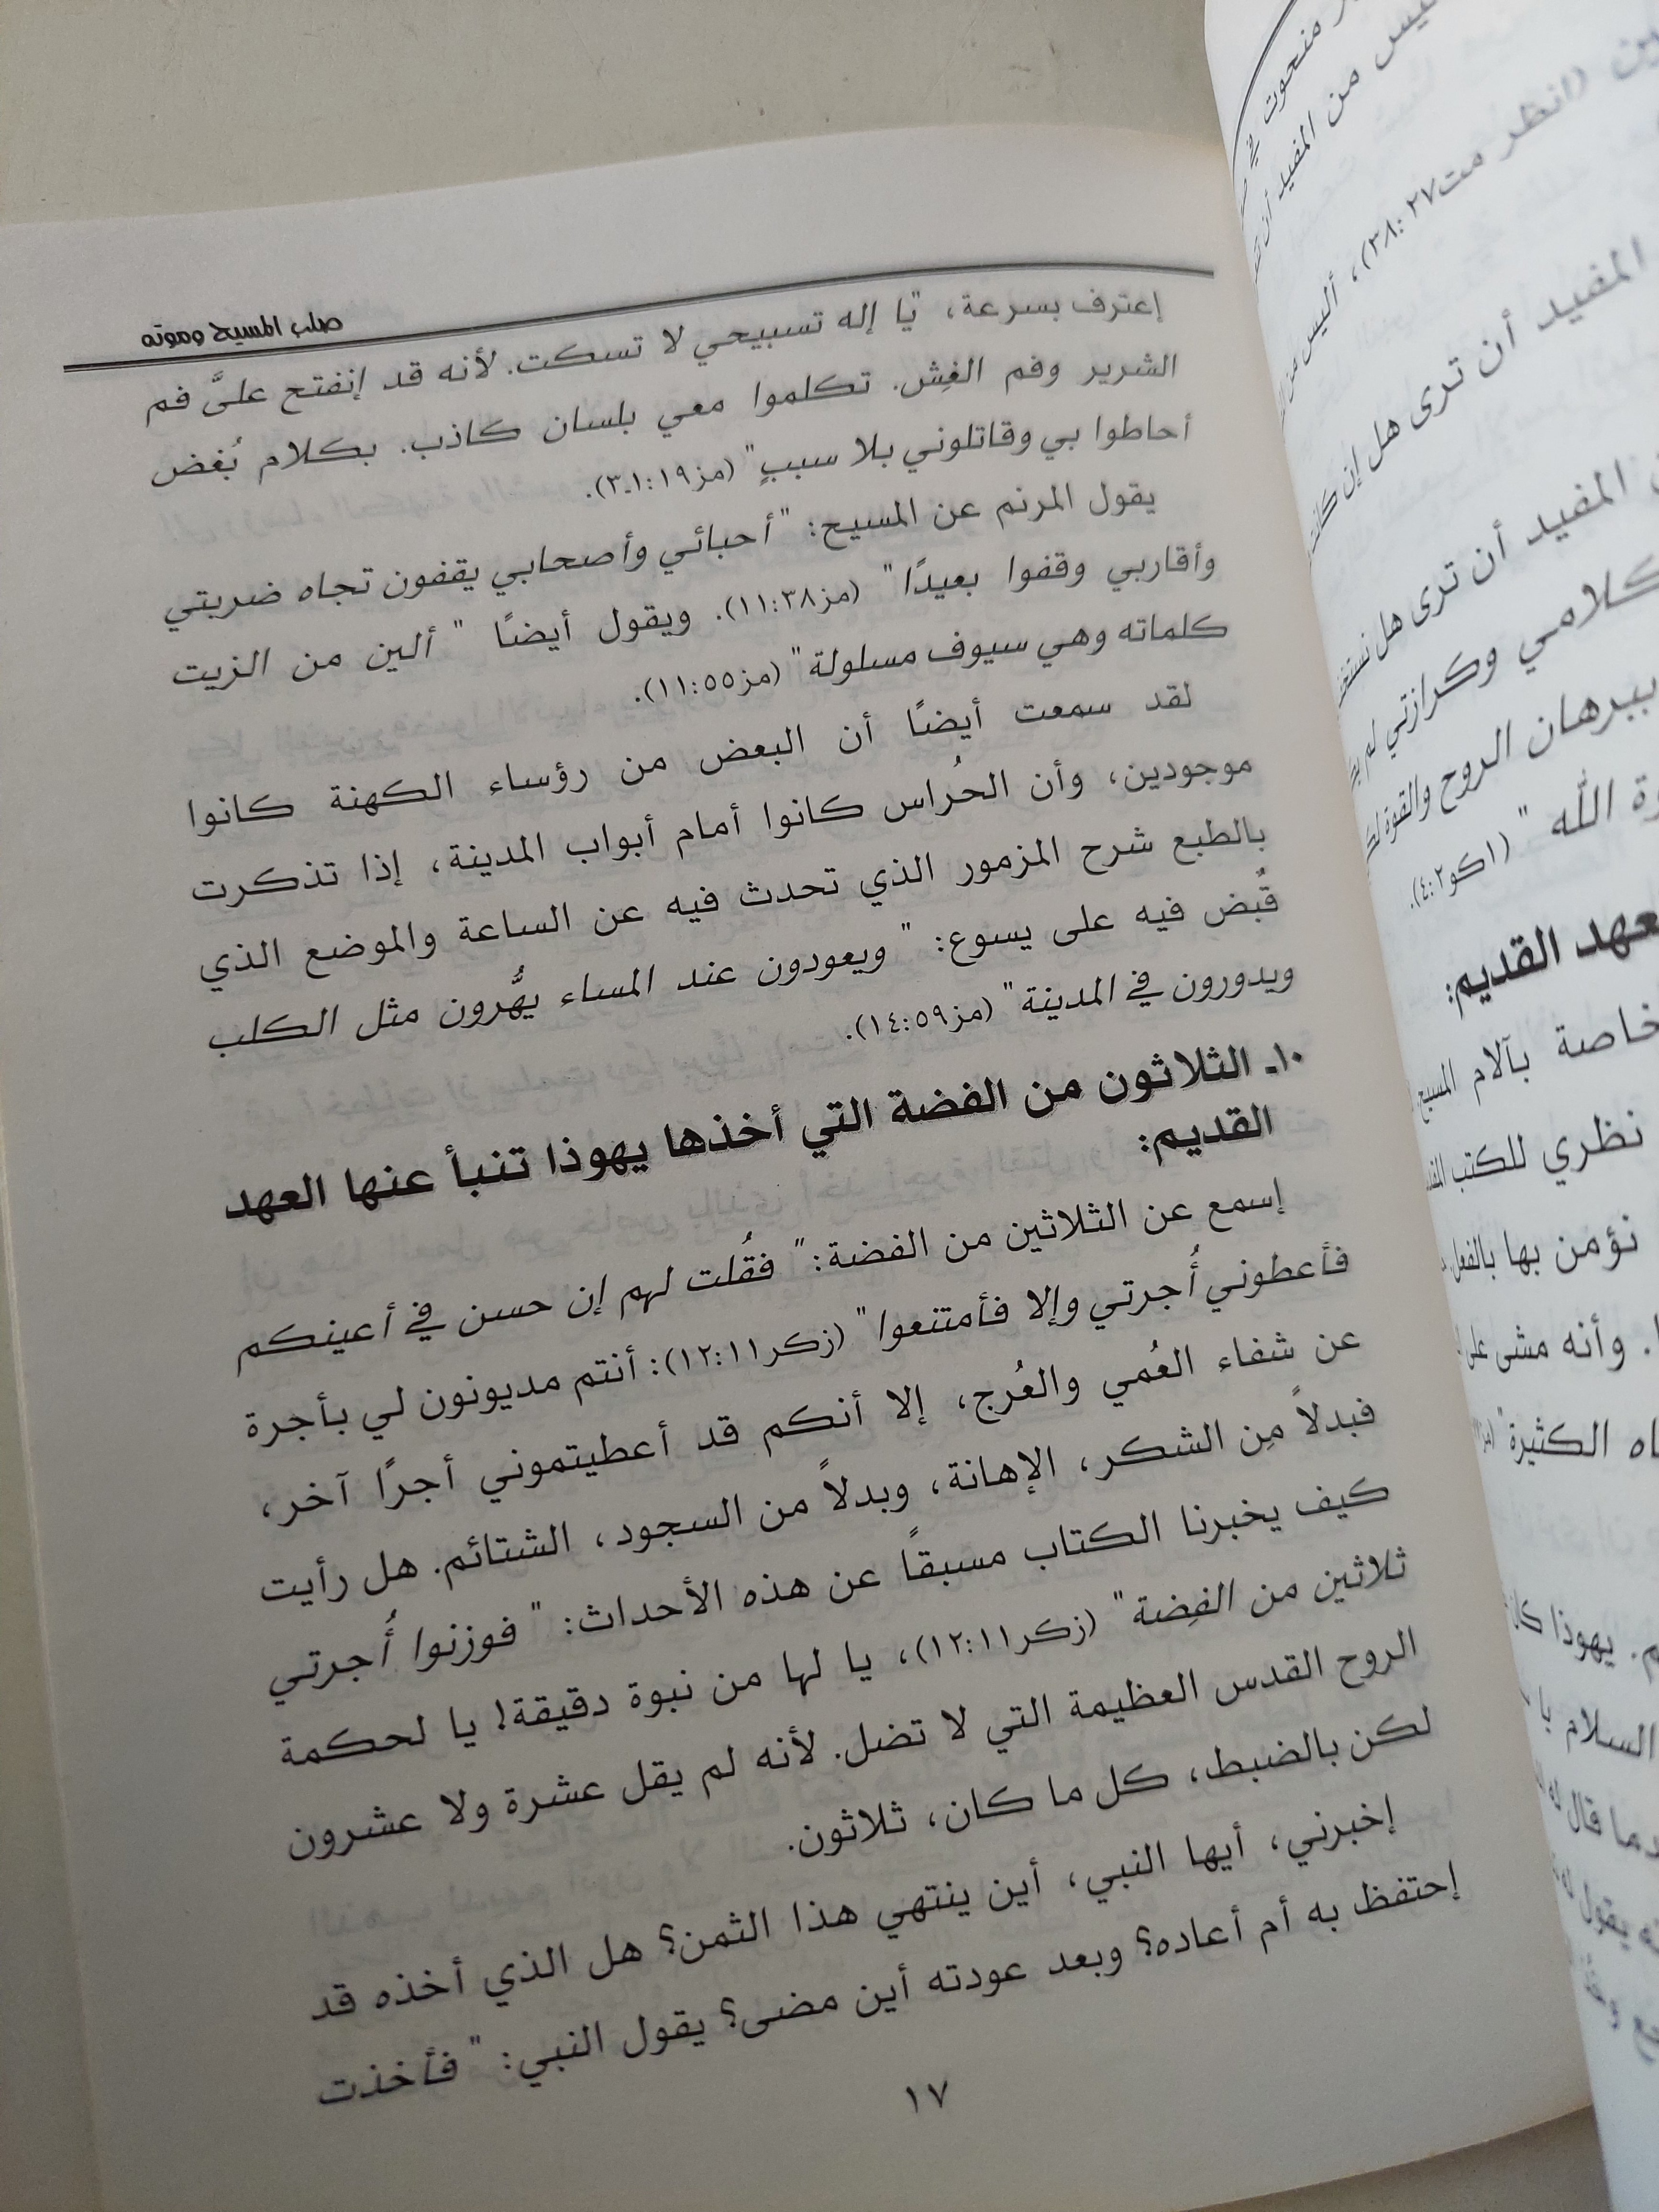 صلب المسيح وموته
إعترف بسرعة، "يا إله تسبيحي لا تسكت. لأنه قد إنفتح علىَّ فم
الشرير وفم الغِش. تكلموا معي بلسان كاذب. بكلام بُغض
أحاطوا بي وقاتلوني بلا سببٍ" (مز١:١٩ـ٣).
يقول المرنم عن المسيح: "أحبائي وأصحابي يقفون تجاه ضربتي
وأقاربي وقفوا بعيدًا" (مز١١:٣٨). ويقول أيضًا " ألين من الزيت
كلماته وهي سيوف مسلولة" (مز١١:٥٥).
لقد سمعت أيضًا أن البعض من رؤساء الكهنة كانوا
موجودين، وأن الحُراس كانوا أمام أبواب المدينة، إذا تذكرت
بالطبع شرح المزمور الذي تحدث فيه عن الساعة والموضع الذي
قُبض فيه على يسوع: " ويعودون عند المساء يهُّرون مثل الكلب
ويدورون في المدينة" (مز١٤:٥٩).
١٠ـ الثلاثون من الفضة التي أخذها يهوذا تنبأ عنها العهد
القديم:
إسمع عن الثلاثين من الفضة:" فقُلت لهم إن حسن في أعينكم
فأعطوني أُجرتي وإلا فأمتنعوا" (زكر١٢:١١): أنتم مديونون لي بأجرة
عن شفاء العُمي والعُرج، إلا أنكم قد أعطيتموني أجرًا آخر،
فبدلاً مِن الشكر، الإهانة، وبدلاً من السجود، الشتائم. هل رأيت
كيف يخبرنا الكتاب مسبقاً عن هذه الأحداث: " فوزنوا أُجرتي
ثلاثين من الفِضة" (زكر١٢:١١)، يا لها من نبوة دقيقة! يا لحكمة
الروح القدس العظيمة التي لا تضل. لأنه لم يقل عشرة ولا عشرون
لكن بالضبط، كل ما كان، ثلاثون.
إخبرني، أيها النبي، أين ينتهي هذا الثمن؟ هل الذي أخذه قد
إحتفظ به أم أعاده؟ وبعد عودته أين مضى؟ يقول النبي: " فأخذت
١٧
منحوت في
من المفيد أن
(انظر مت٣٨:٢٧)، أليس من
المفيد أن ترى هل إن كانت
المفيد أن ترى هل
كلامي وكرازتي لم
ببرهان الروح والقوة
الله " (١كو٤:٢).
القديم:
خاصة بآلام المسيح
نظري للكتب
نؤمن بها بالفعل
وأنه مشى
الكثيرة"
يهوذا
السلام يا
قال له
يقول